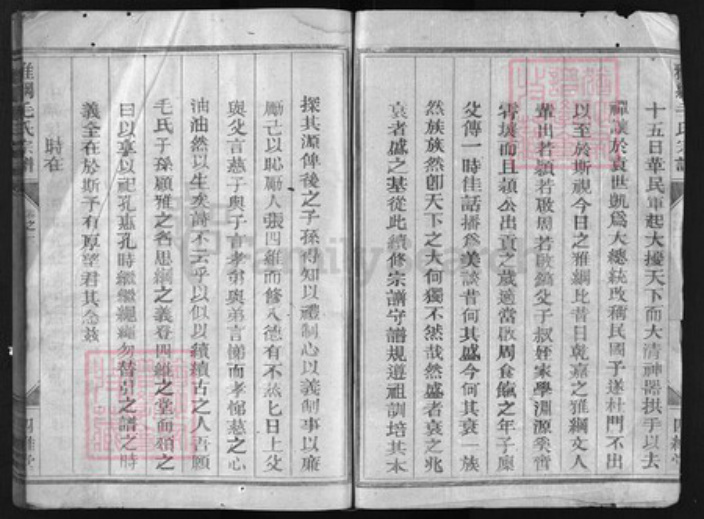 十五日華民軍起大擾天下而大清神器拱手以去
禪讓於袁世凱爲大總統改稱民國予遂杜門不出
以至於斯視今日之雅綱比昔日乾嘉之雅綱文人
輩出若穎若啟周若敬鎬父子叔姪家學淵源奚啻
霄壤而且穎公出貢之歲適當啟周食餼之年子廩
父傳一時佳話播爲美談昔何其盛今何其衰一族
然族族然卽天下之大何獨不然哉然盛者衰之兆
衰者盛之基從此續修宗譜守譜規遵祖訓培其本
探其源俾後之子孫得知以禮制心以義制事以廉
勵己以恥勵人張四維而修入德有不蒸匕日上父
與父言慈子與子言孝弟與弟言悌而孝悌慈之心
油油然以生矣詩不云乎以似以續續古之人吾願
毛氏子孫顧雅之名思綱之義登四維之堂而頌之
曰以享以祀孔惠孔時繼繼繩繩勿替引之譜之時
義全在於斯予有厚望君其念茲
時在
雅綱毛氏宗譜
四維堂
FamilySearch